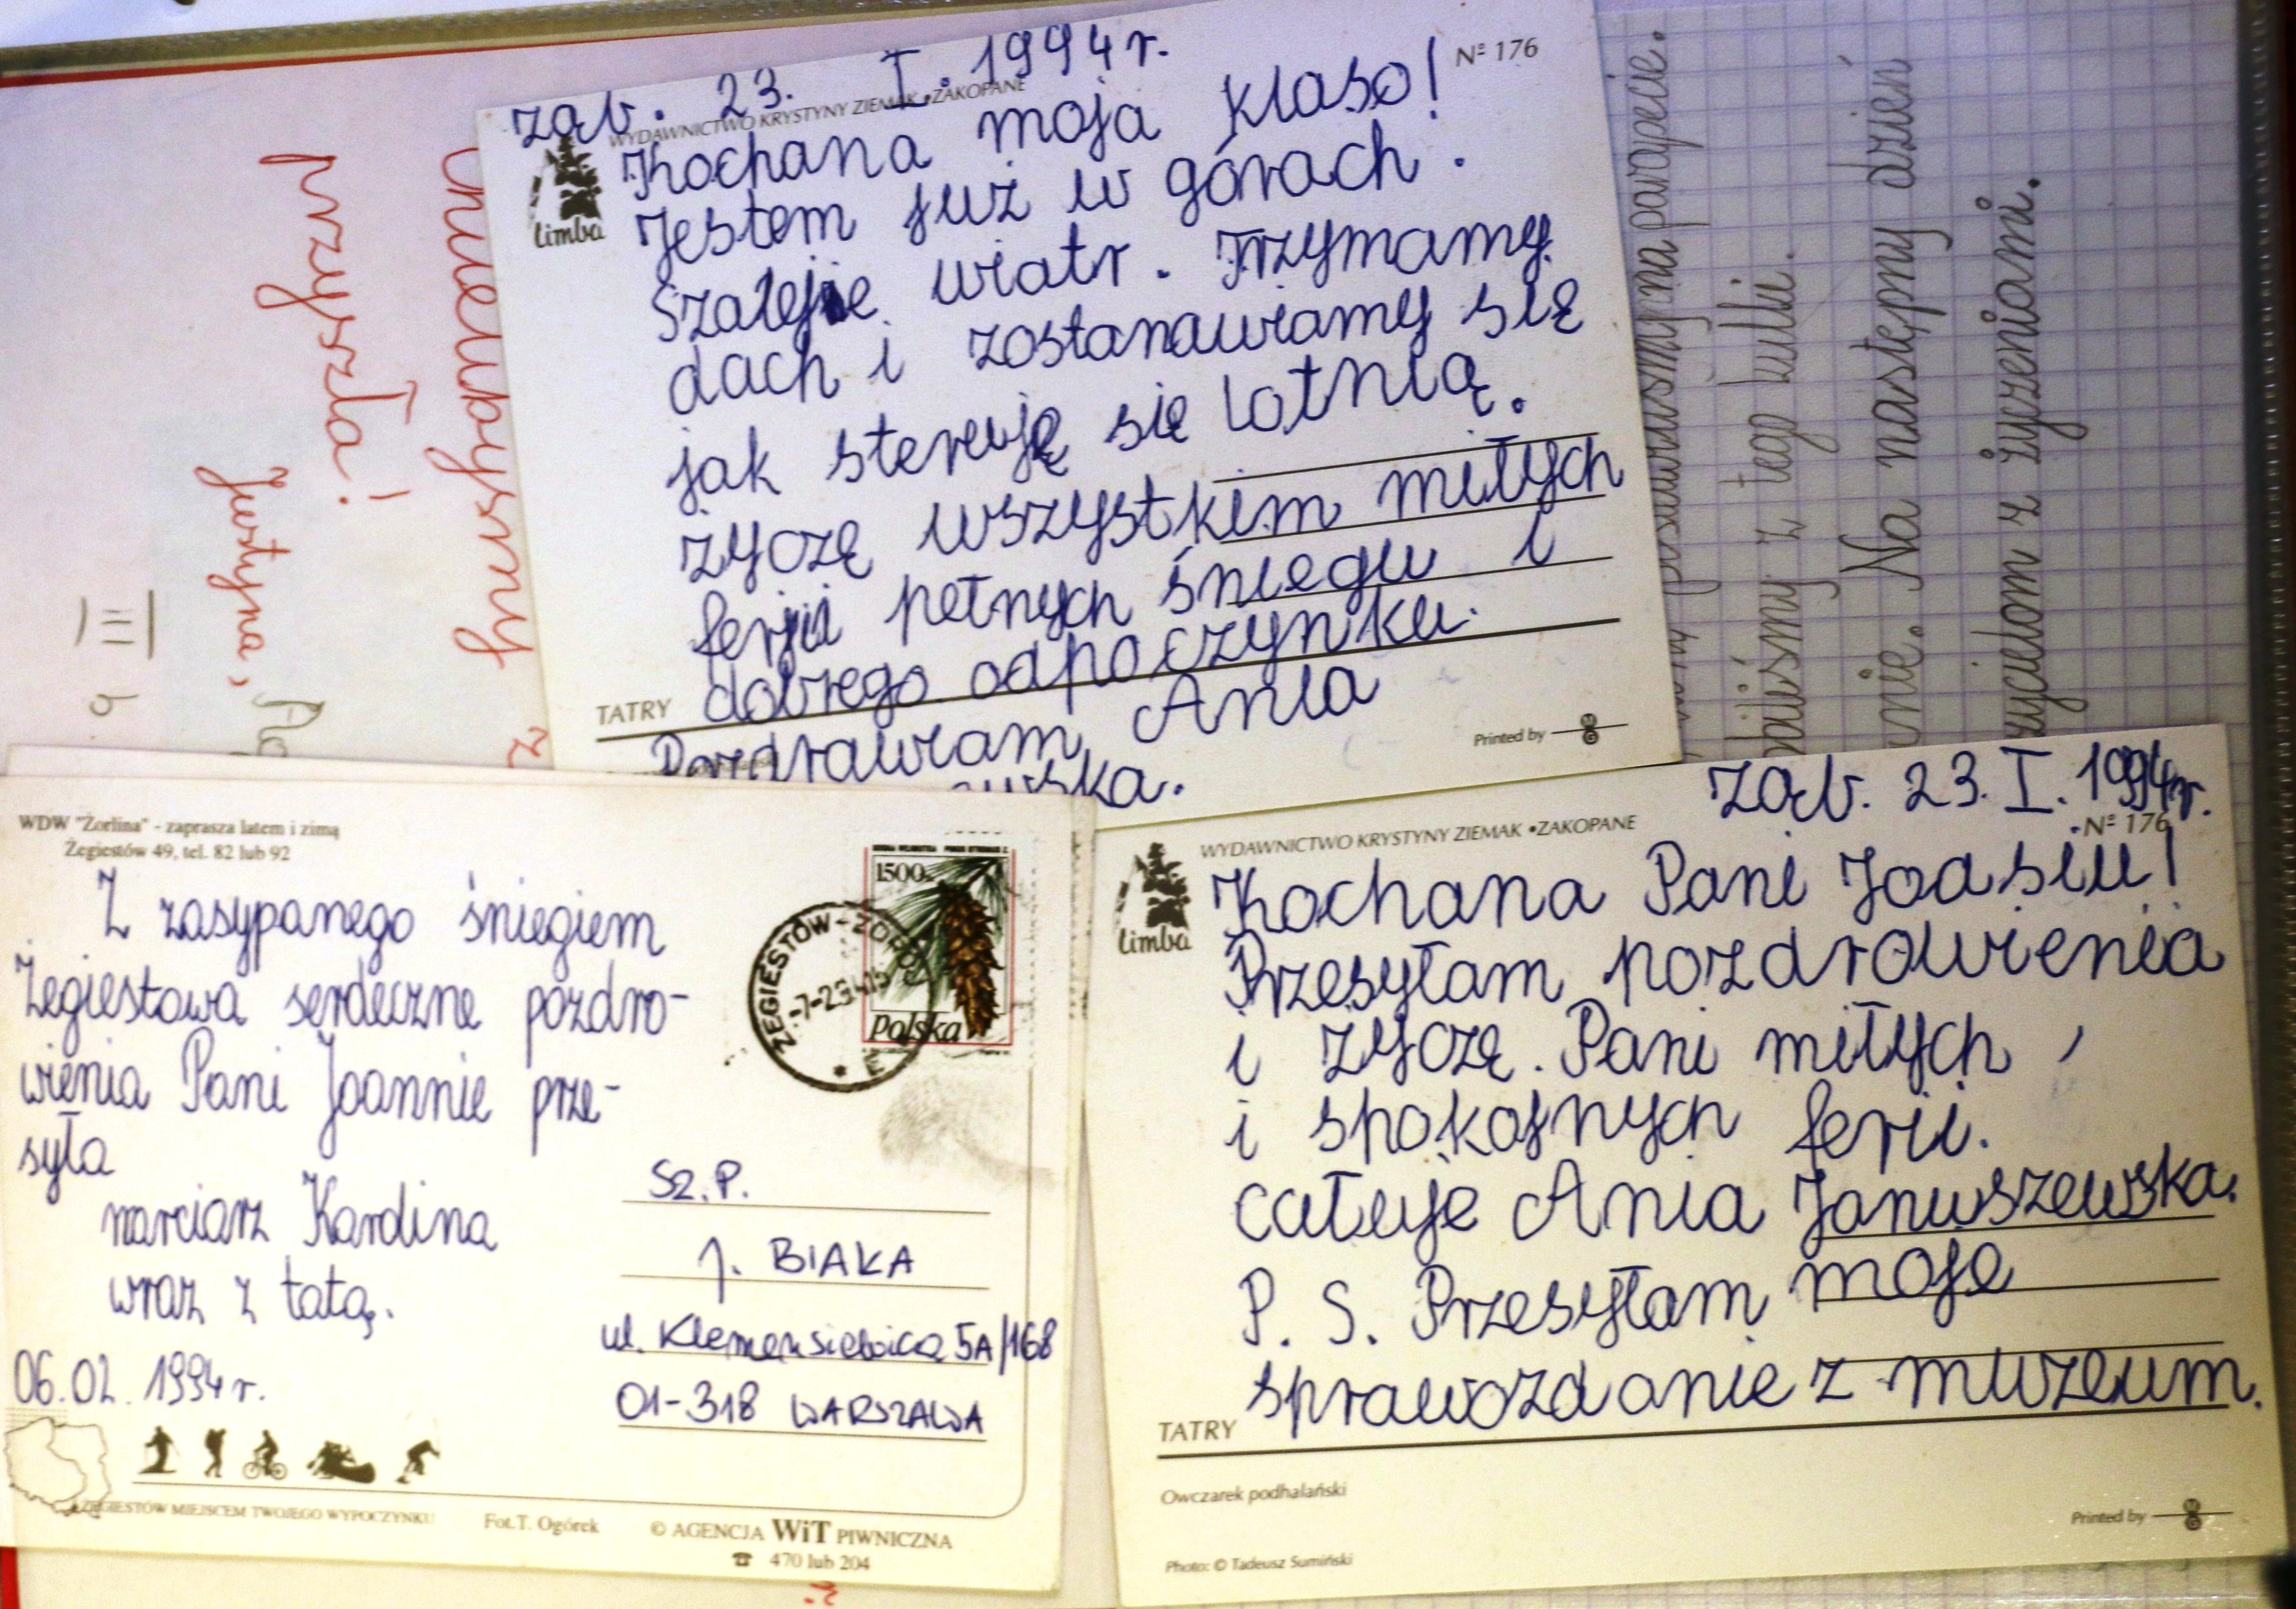 ząb. 23. I. 1994 r.
WYDAWNICTWO KRYSTYNY ZIEMAK •ZAKOPANE
Nº 176
limba
Kochana moja klaso!
Jestem już w górach.
Szaleje wiatr. Trzymamy
dach i zostanawiamy się
jak steruję się lotnią.
życzę wszystkim miłych
ferii pełnych śniegu i
dobrego odpoczynku.
TATRY
Pozdrawiam Ania
wska.
Printed by
przyszła!
Justyna,
III
na parapecie.
z tego kulki.
Na następny dzień
z życzeniami.
WDW "Żorlina" - zaprasza latem i zimą
Żegiestów 49, tel. 82 lub 92
Z zasypanego śniegiem
Żegiestowa serdeczne pozdro-
wienia Pani Joannie prze-
syła
narciarz Kardina
wraz z tatą.
06.02.1994 r.
1500
polska
ŻEGIESTÓW-ZDRÓJ
Sz. P.
J. BIAKA
ul. Klemensiewicza 5A/168
01-318 WARSZAWA
ŻEGIESTÓW MIEJSCEM TWOJEGO WYPOCZYNKU
Fot.T. Ogórek
© AGENCJA WiT PIWNICZNA
☎ 470 lub 204
ząb. 23. I. 1994r.
WYDAWNICTWO KRYSTYNY ZIEMAK •ZAKOPANE
Nº 176
limba
Kochana Pani Joasiu!
Przesyłam pozdrowienia
i życzę Pani miłych,
i spokojnych ferii.
całuje Ania Januszewska.
P. S. Przesyłam moje
sprawozdanie z muzeum.
TATRY
Owczarek podhalański
Printed by
Photo: © Tadeusz Sumiński